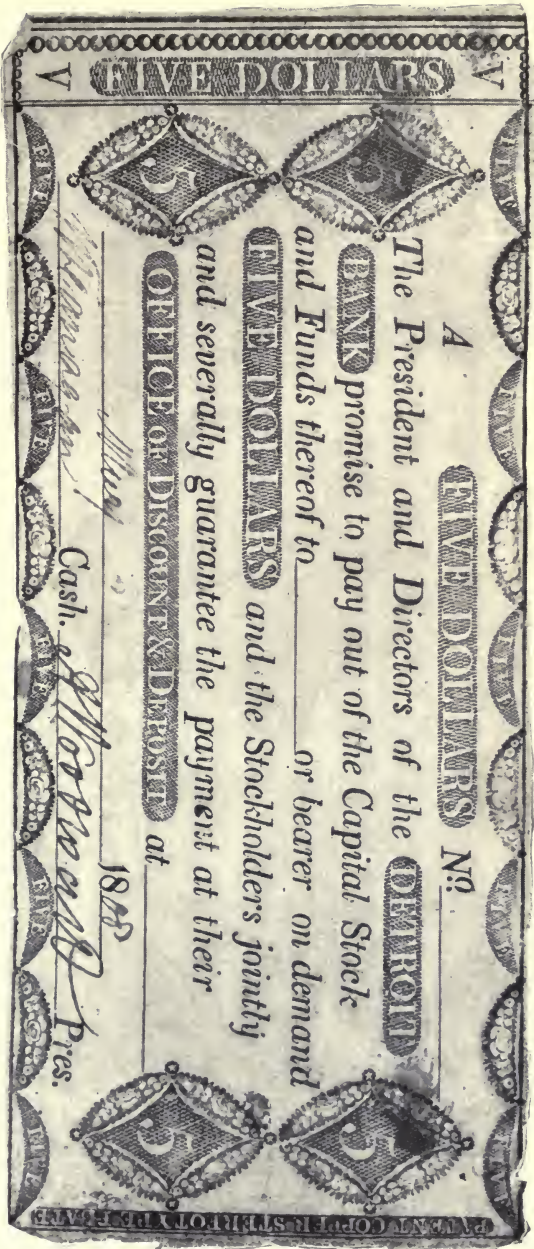 V FIVE DOLLARS V
A FIVE DOLLARS No.
The President and Directors of the DETROIT
BANK promise to pay out of the Capital Stock
and Funds thereof to or bearer on demand
FIVE DOLLARS and the Stockholders jointly
and severally guarantee the payment at their
OFFICE OF DISCOUNT & DEPOSIT at
May 18
Cash. A Woodward Pres.
5
5
5
5
FIVE
FIVE
FIVE
FIVE
FIVE
FIVE
FIVE
FIVE
FIVE
FIVE
PATENT COPPER STEREOTYPE PLATE